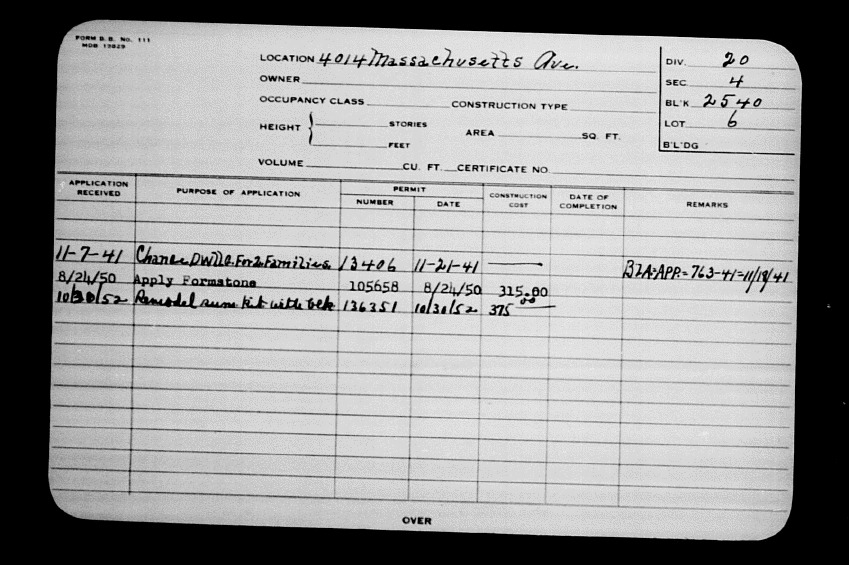 FORM B. B. No. 111
MDB 13829
LOCATION 4014 Massachusetts Ave.
OWNER
OCCUPANCY CLASS CONSTRUCTION TYPE
HEIGHT { STORIES
FEET
AREA SQ. FT.
VOLUME CU. FT. CERTIFICATE NO.
DIV. 20
SEC. 4
BL'K 2540
LOT 6
B'L'DG
APPLICATION RECEIVED PURPOSE OF APPLICATION PERMIT NUMBER DATE CONSTRUCTION COST DATE OF COMPLETION REMARKS
11-7-41 Change Dwllg. For 2 Families. 13406 11-21-41 BZA=APP.=763-41=11/18/41
8/24/50 Apply Formstone 105658 8/24/50 315.00
10/30/52 Remodel kit with 136351 10/30/52 375.00
OVER